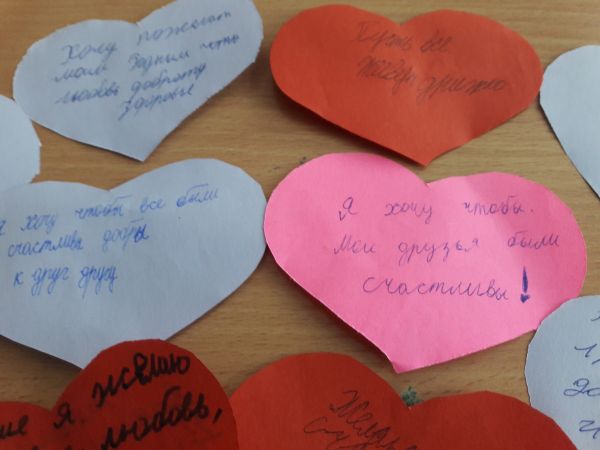 Хочу пожелать
моим родным что
любовь доброту
здоровье
Пусть все
живут дружно
Я хочу чтобы все были
счастливы добры
к друг другу
Я хочу чтобы.
Мои друзья были
счастливы!
я желаю
любовь,